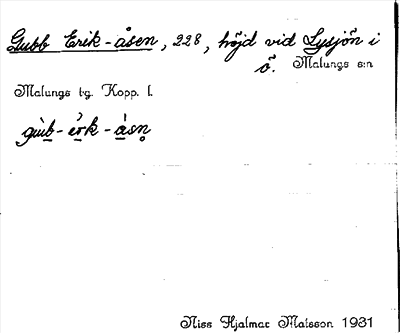 Gubb Erik-åsen, 228, höjd vid Lysjön i
ö. Malungs s:n
Malungs tg. Kopp. l.
gùb-èrk-àsn̥
Niss Hjalmar Matsson 1931